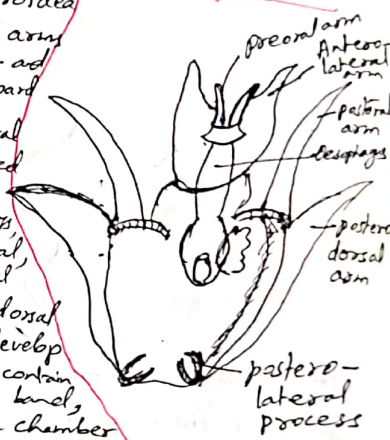 arms
- ad
dorsal
develop
contain
band,
- chamber
Preoral arm
Antero-
lateral
arm
postoral
arm
Oesophags
postero
dorsal
arm
postero-
lateral
process